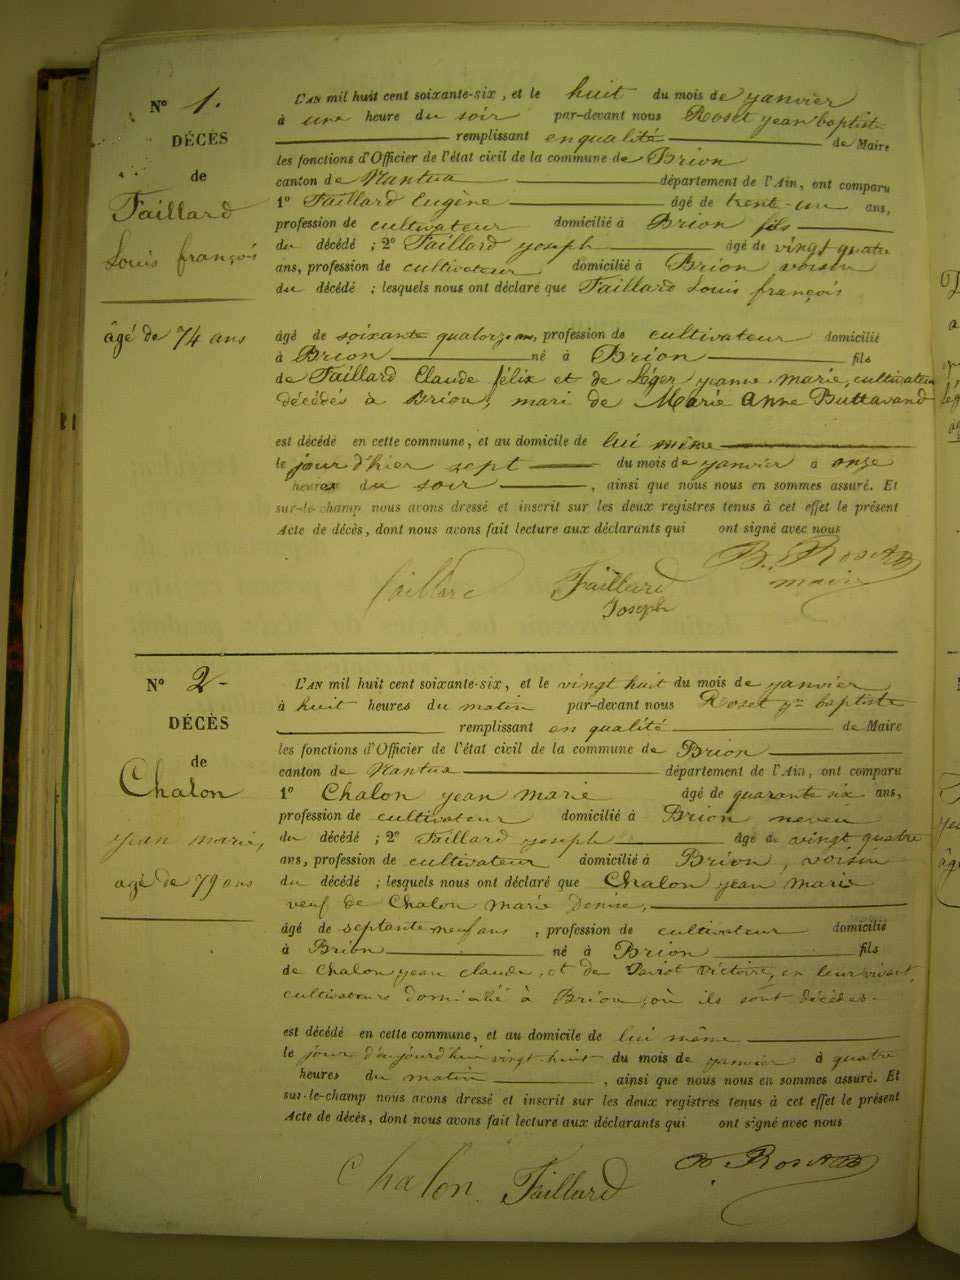 N° 1.
DÉCÈS
de
Faillard
Louis françois
âgé de 74 ans
L'AN mil huit cent soixante-six, et le huit du mois de yanvier
à une heure du soir par-devant nous Roset yean baptiste
remplissant en qualité de Maire
les fonctions d'Officier de l'état civil de la commune de Brion
canton de Nantua département de l'Ain, ont comparu
1° Faillard Eugène âgé de trente-un ans,
profession de cultivateur domicilié à Brion fils
du décédé ; 2° Faillard yoseph âgé de vingt quatre
ans, profession de cultivateur domicilié à Brion voisin
du décédé ; lesquels nous ont déclaré que Faillard Louis françois
âgé de soixante quatorze ans, profession de cultivateur domicilié
à Brion né à Brion fils
de Faillard Claude félix et de Léger yeanne marie, cultivateurs
décédés à Brion, mari de Marie Anne Buttavand
est décédé en cette commune, et au domicile de lui même
le jour d'hier sept du mois de yanvier à onze
heures du soir , ainsi que nous nous en sommes assuré. Et
sur-le-champ nous avons dressé et inscrit sur les deux registres tenus à cet effet le présent
Acte de décès, dont nous avons fait lecture aux déclarants qui ont signé avec nous
faillard Faillard B. Roset
Joseph maire
N° 2
DÉCÈS
de
Chalon
yean marie,
agé de 79 ans
L'AN mil huit cent soixante-six, et le vingt huit du mois de yanvier
à huit heures du matin par-devant nous Roset yn baptiste
remplissant en qualité de Maire
les fonctions d'Officier de l'état civil de la commune de Brion
canton de Nantua département de l'Ain, ont comparu
1° Chalon yean marie âgé de quarante six ans,
profession de cultivateur domicilié à Brion neveu
du décédé ; 2° Faillard yoseph âgé de vingt quatre
ans, profession de cultivateur domicilié à Brion, voisin
du décédé ; lesquels nous ont déclaré que Chalon yean marie
veuf de Chalon marie Denise,
âgé de septante neuf ans , profession de cultivateur domicilié
à Brion né à Brion fils
de Chalon yean claude, et de Victoire, en leur vivant
cultivateurs domicilié à Brion, où ils sont décédés.
est décédé en cette commune, et au domicile de lui même
le jour d'aujourd'hui vingt huit du mois de yanvier à quatre
heures du matin , ainsi que nous nous en sommes assuré. Et
sur-le-champ nous avons dressé et inscrit sur les deux registres tenus à cet effet le présent
Acte de décès, dont nous avons fait lecture aux déclarants qui ont signé avec nous
Chalon Faillard B. Roset